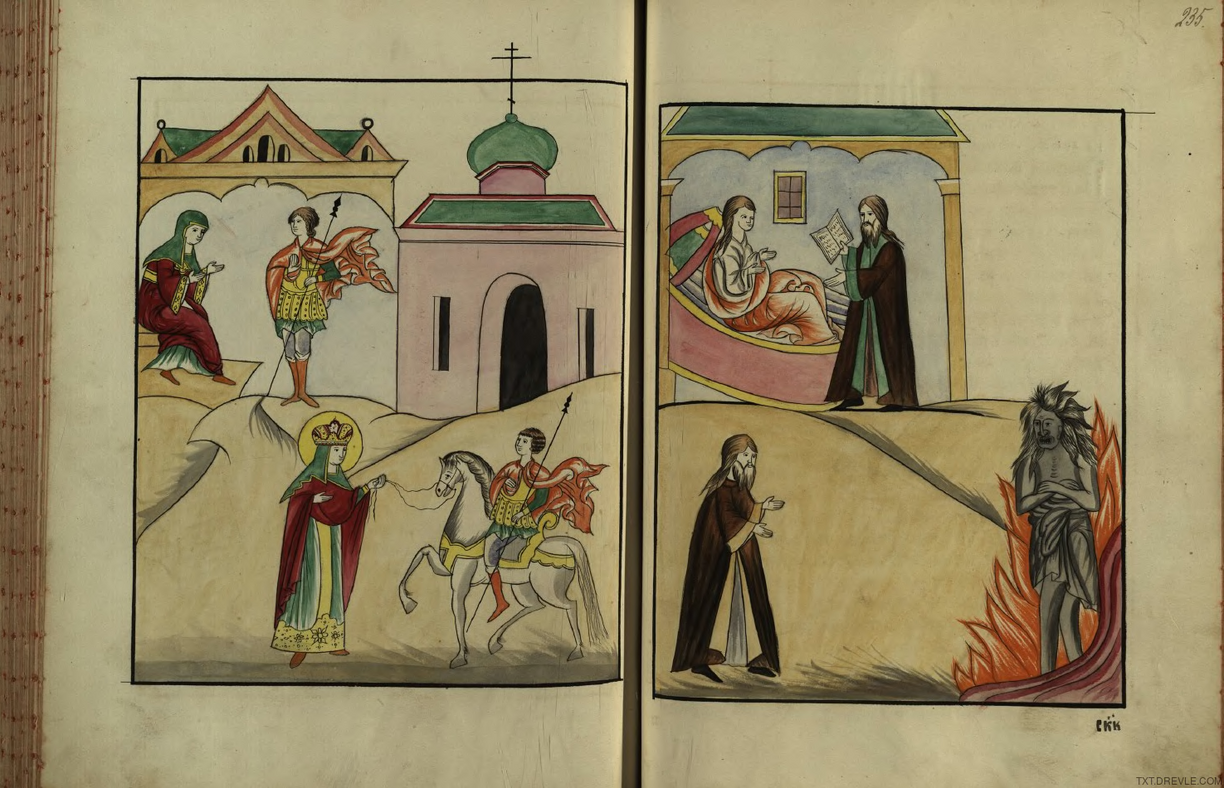 235.
СКК
TXT.DREVLE.COM